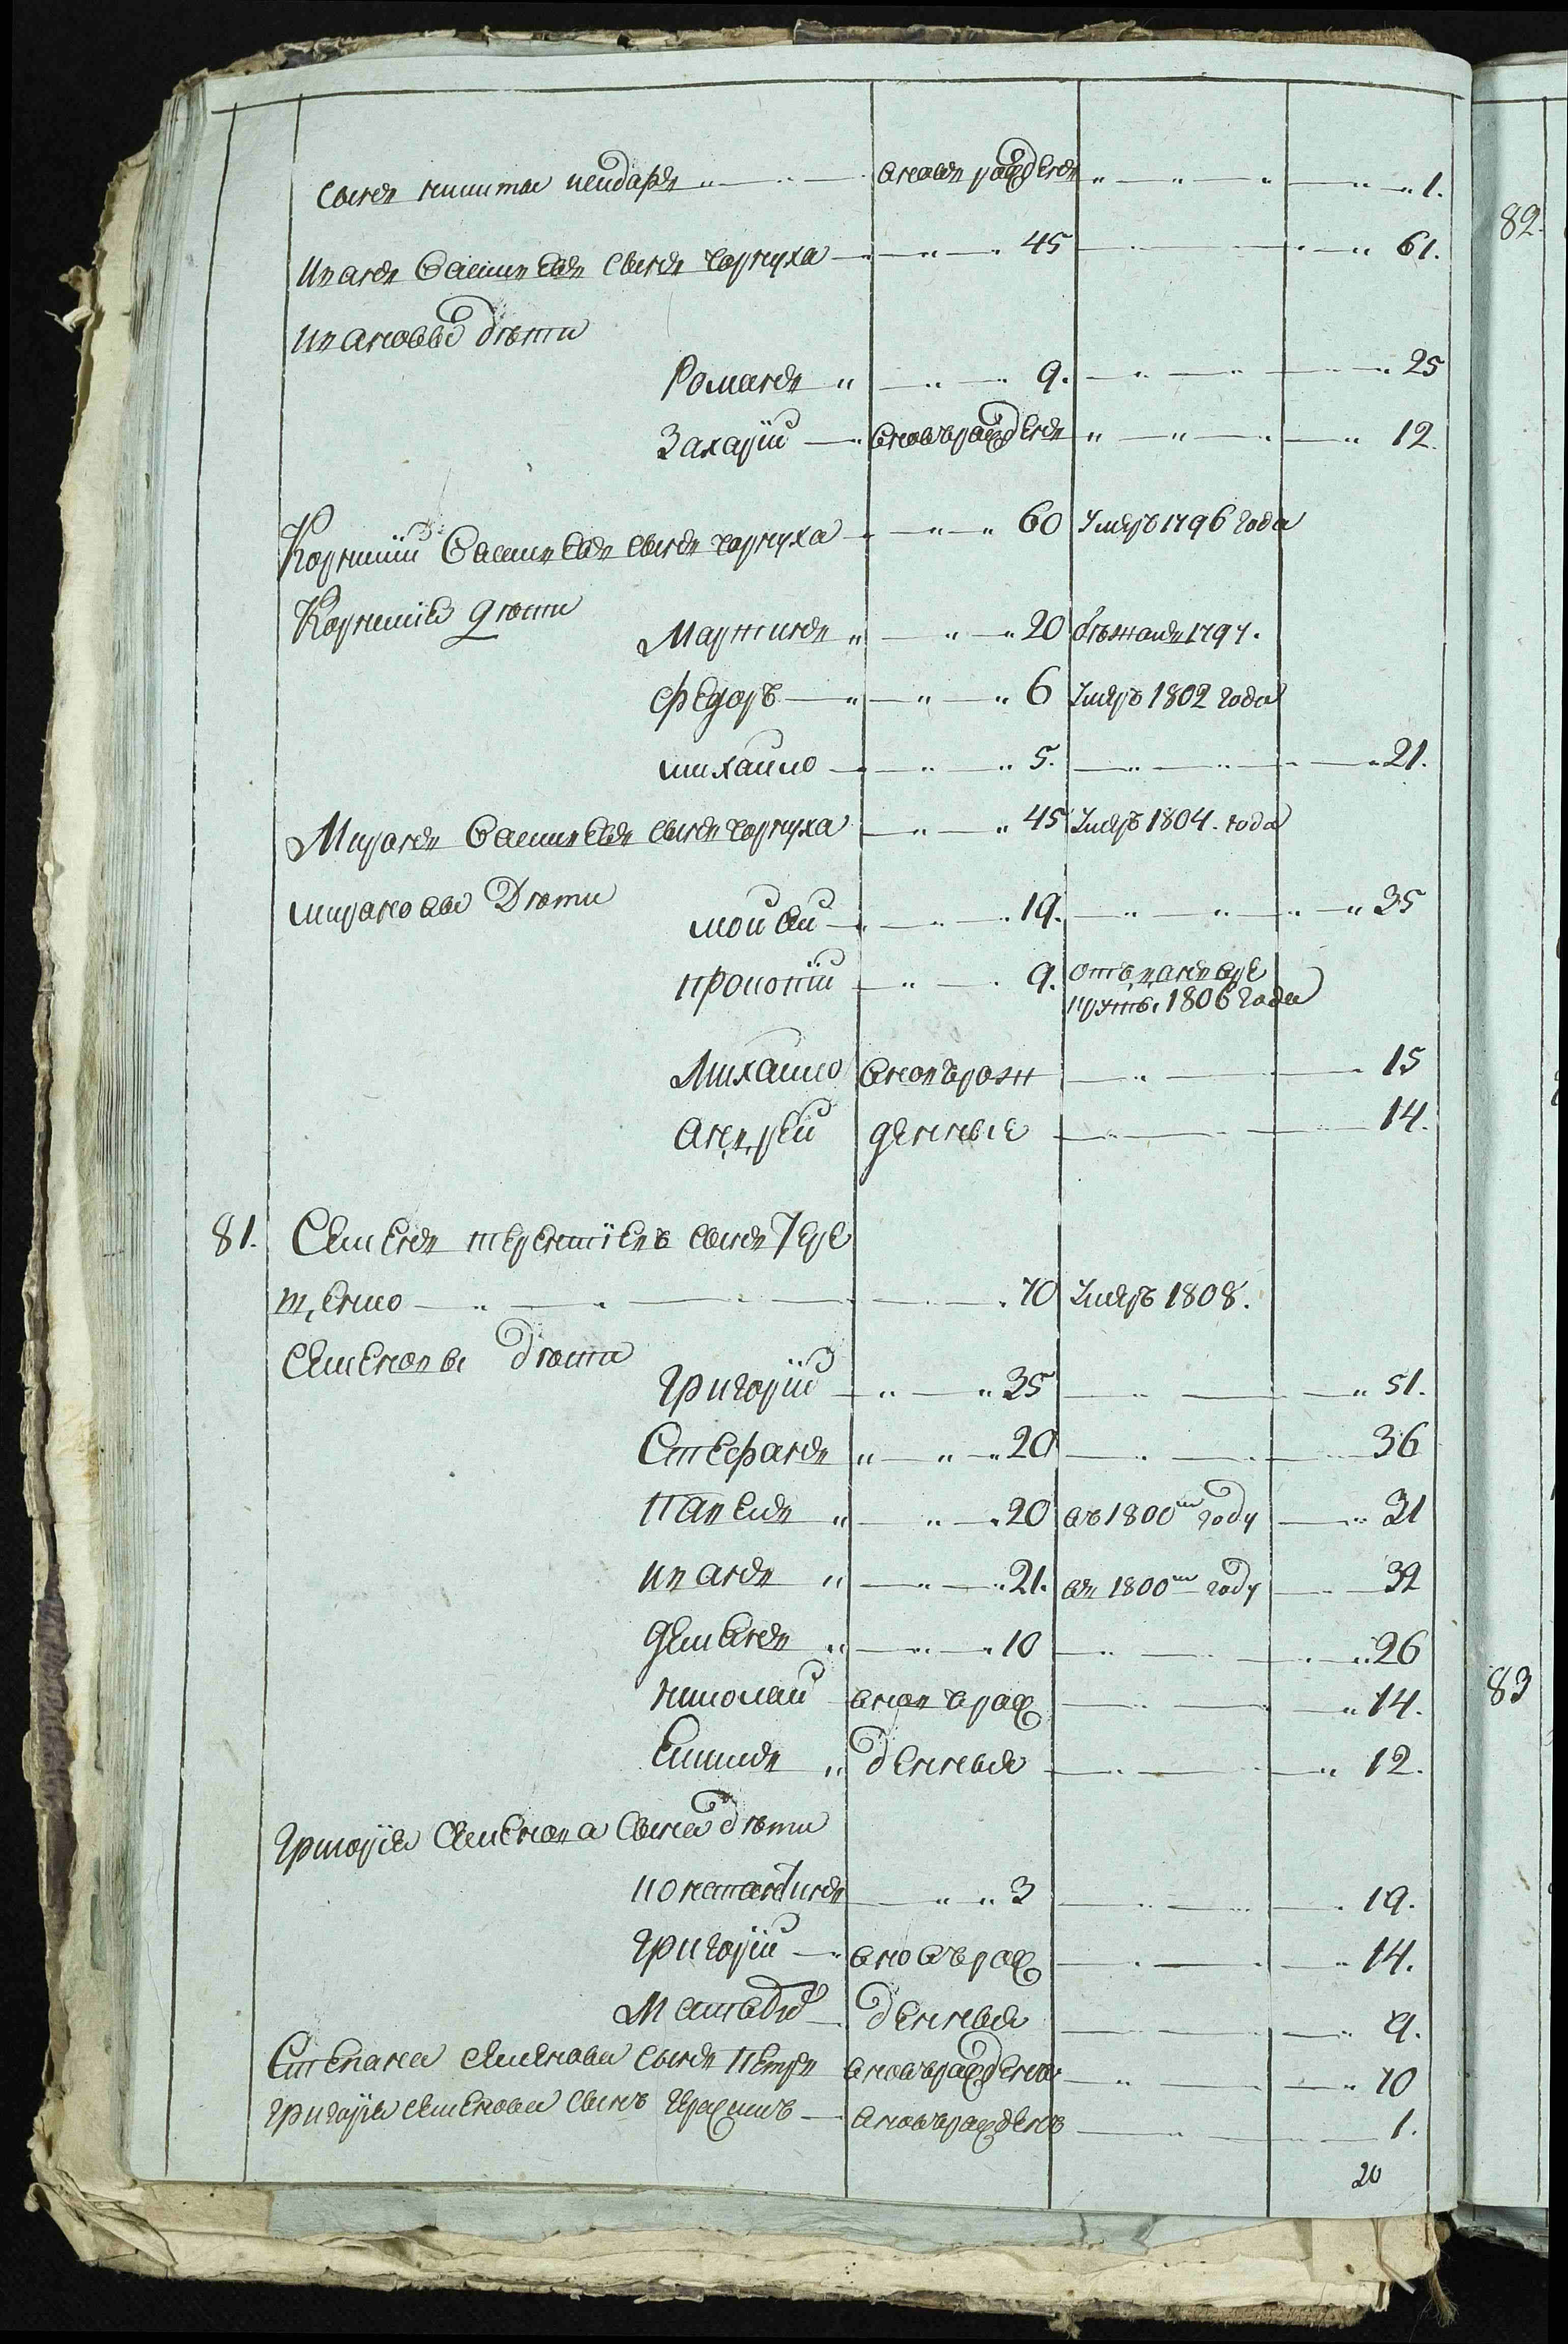 сынъ никиты кондрат вновь рожденъ 1.
Иванъ Васильевъ сынъ чорнуха 45 61.
Ивановы дѣти
Романъ 9. 25
Захарій вновърожденъ 12.
Корнилій Васильевъ сынъ чорнуха 60 Умеръ 1796 года
Корнилія дѣти
Мартинъ 20 бѣжалъ 1797.
Федоръ 6 Умеръ 1802 года
михаило 5. 21.
Миронъ Васильевъ сынъ чорнуха 45 Умеръ 1804. года
мироновы Дѣти
мойсей 19. 35
прокопій 9. отданъ въ ре
круты 1806 года
Михайло вновърож 15
Андрей денные 14.
81. Семенъ терентіевъ сынъ Тере
щенко 70 Умеръ 1808.
семеновы дѣти
Григорій 35 51.
Стефанъ 20 36
Павелъ 20 въ 1800м году 31
иванъ 21. въ 1800м году 32
демянъ 10 26
николай вновърож 14.
Емилиянъ денныя 12.
Григорія Семенова сына дѣти
константинъ 3 19.
Григорій вновърож 14.
Матвѣй денныя 9.
Степана семенова сынъ Петръ вновърожденъ 10
григорія семенова сынъ Герасимъ вновърожденъ 1.
20
82.
83